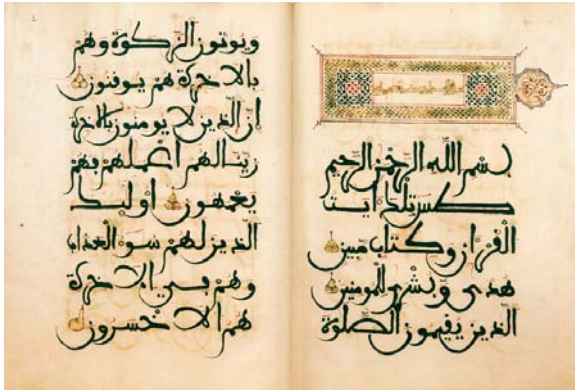 بسم الله الرحمن الرحيم
طس تلك ايت
القران وكتاب مبين
هدى وبشرى للمومنين
الذين يقيمون الصلوة
ويوتون الزكوة وهم
بالاخرة هم يوقنون
ان الذين لا يومنون بالاخرة
زينا لهم اعملهم فهم
يعمهون اوليك
الذين لهم سوء العذاب
وهم في الاخرة
هم الاخسرون